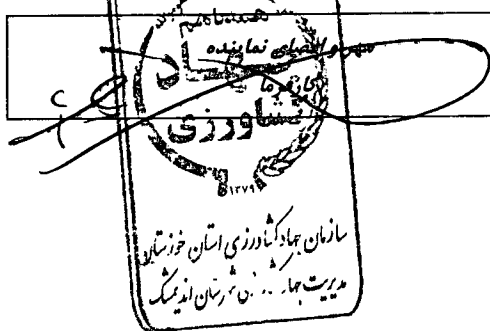 مهر و امضای نماینده
کارفرما
جهاد
کشاورزی
۱۳۷۹
سازمان جهاد کشاورزی استان خوزستان
مدیریت جهاد کشاورزی شهرستان اندیمشک